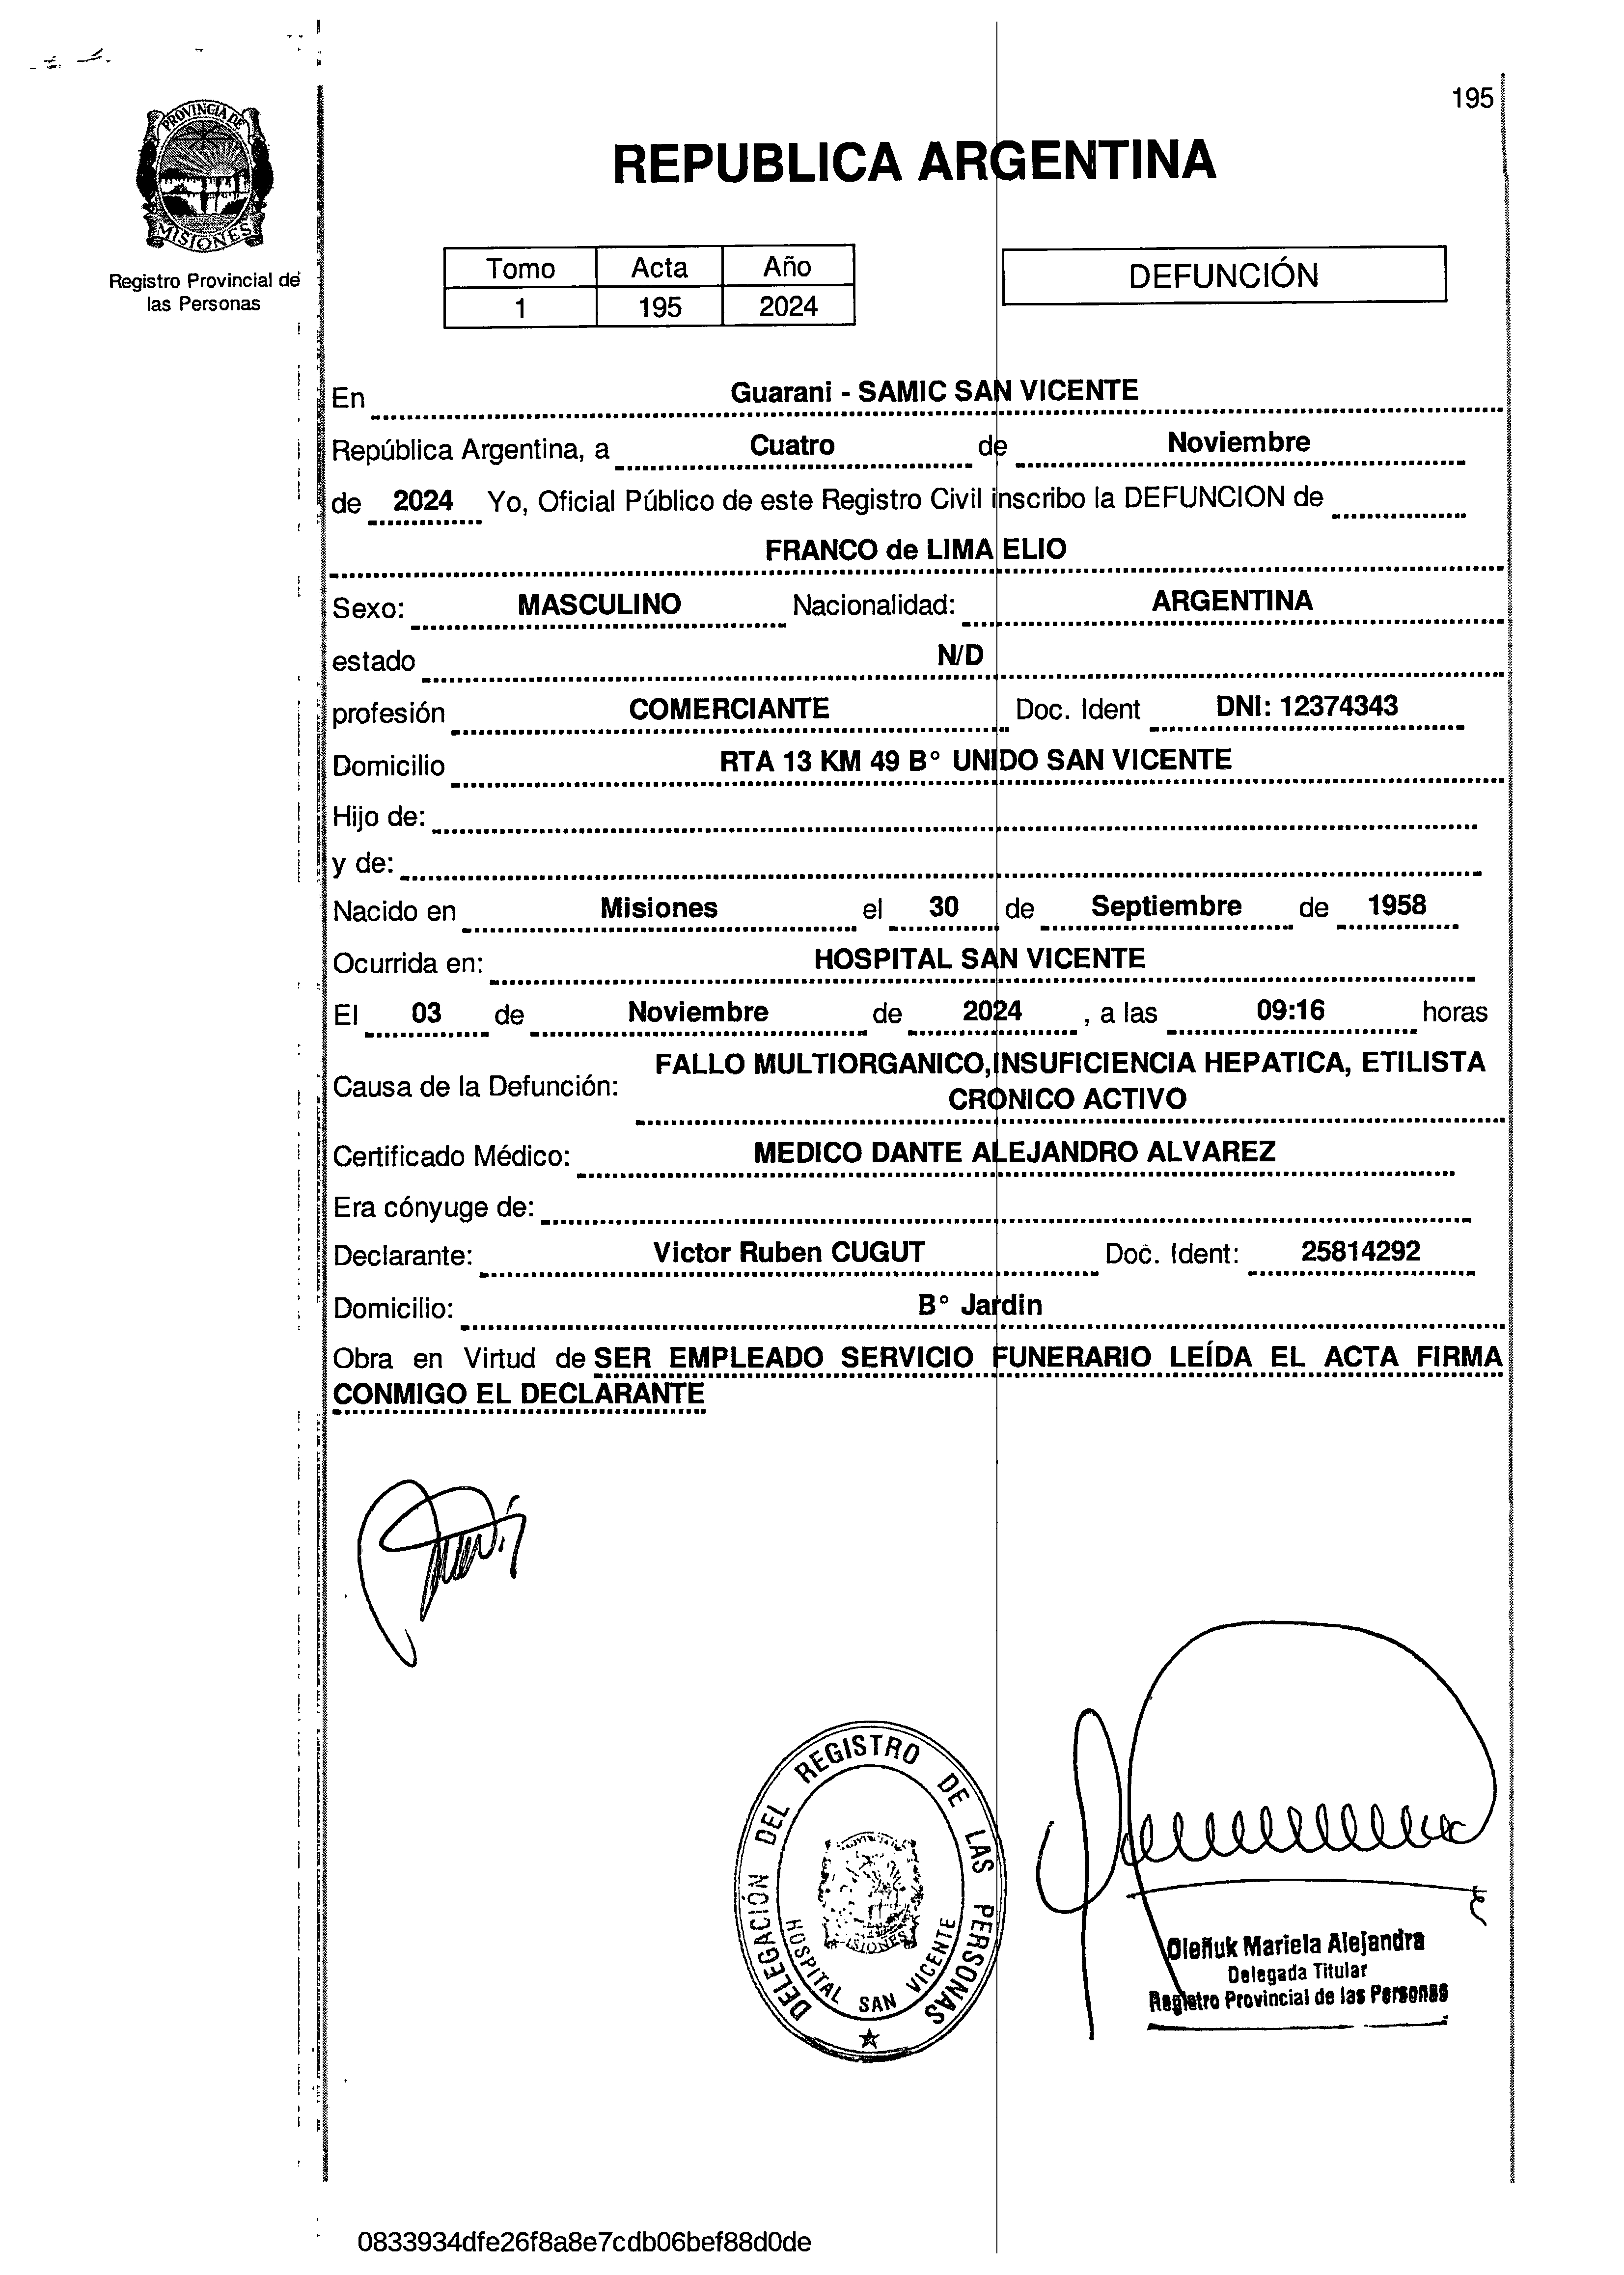 195
PROVINCIA DE
MISIONES
Registro Provincial de
las Personas
REPUBLICA ARGENTINA
Tomo Acta Año
1 195 2024
DEFUNCIÓN
En Guarani - SAMIC SAN VICENTE
República Argentina, a Cuatro de Noviembre
de 2024 Yo, Oficial Público de este Registro Civil inscribo la DEFUNCION de
FRANCO de LIMA ELIO
Sexo: MASCULINO Nacionalidad: ARGENTINA
estado N/D
profesión COMERCIANTE Doc. Ident DNI: 12374343
Domicilio RTA 13 KM 49 B° UNIDO SAN VICENTE
Hijo de:
y de:
Nacido en Misiones el 30 de Septiembre de 1958
Ocurrida en: HOSPITAL SAN VICENTE
El 03 de Noviembre de 2024 , a las 09:16 horas
Causa de la Defunción: FALLO MULTIORGANICO,INSUFICIENCIA HEPATICA, ETILISTA
CRONICO ACTIVO
Certificado Médico: MEDICO DANTE ALEJANDRO ALVAREZ
Era cónyuge de:
Declarante: Victor Ruben CUGUT Doc. Ident: 25814292
Domicilio: B° Jardin
Obra en Virtud de SER EMPLEADO SERVICIO FUNERARIO LEÍDA EL ACTA FIRMA
CONMIGO EL DECLARANTE
DELEGACIÓN DEL REGISTRO DE LAS PERSONAS
HOSPITAL SAN VICENTE
MISIONES
Oleñuk Mariela Alejandra
Delegada Titular
Registro Provincial de las Personas
0833934dfe26f8a8e7cdb06bef88d0de